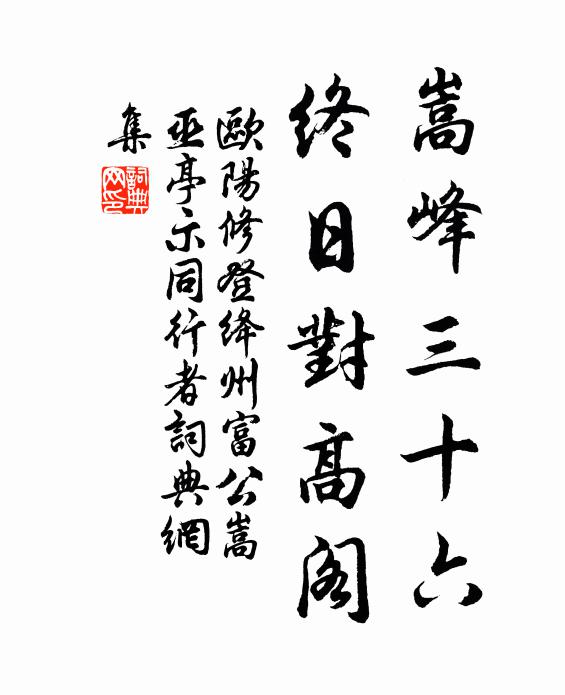 嵩峰三十六
終日對高閣
歐陽修登絳州富公嵩
巫亭示同行者詞典網
集
詞典
网印